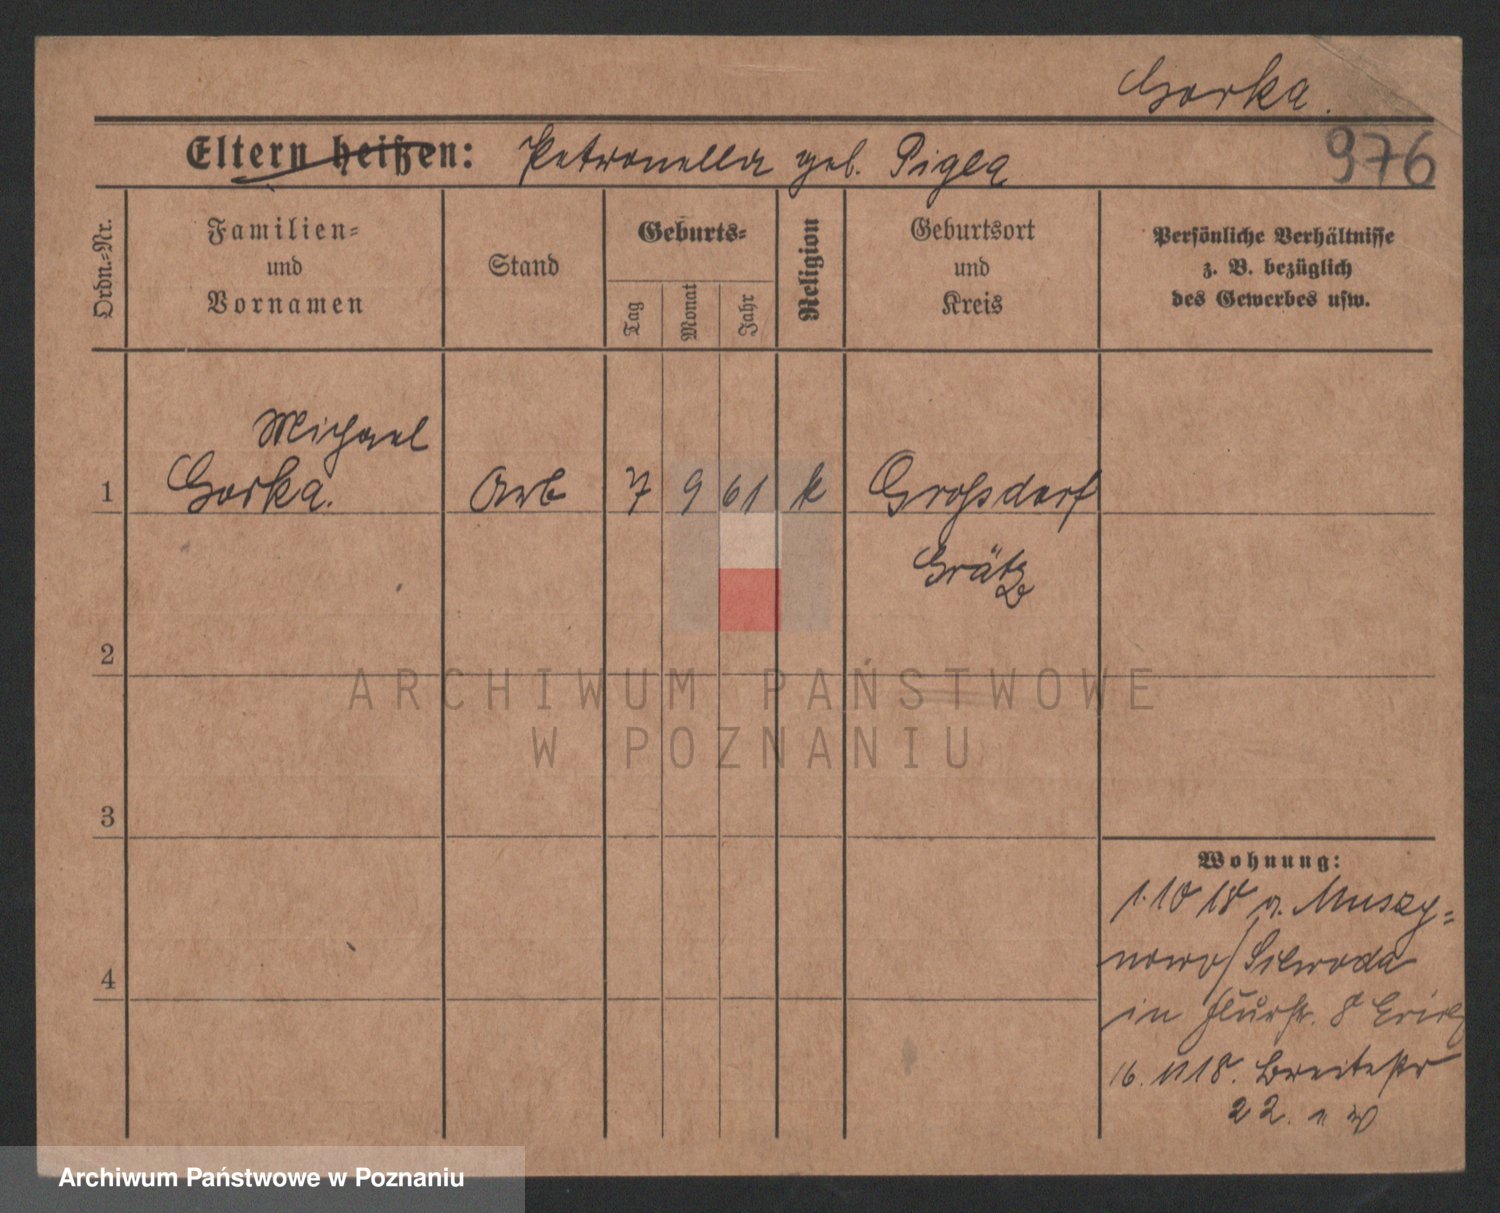 Gorka.
976
Eltern heißen: Petronella geb. Pigla
Ordn.-Nr.
Familien-
und
Vornamen
Stand
Geburts-
Tag
Monat
Jahr
Religion
Geburtsort
und
Kreis
Persönliche Verhältnisse
z. B. bezüglich
des Gewerbes usw.
Michael
1 Gorka. Arb 7 9 61 k Grossdorf
Grätz
2
ARCHIWUM PAŃSTWOWE
W POZNANIU
3
4
Wohnung:
1.10 18 a. Muszy=
nowo/
in Flurstr. 8
16. 11 18. Breitestr
22.
Archiwum Państwowe w Poznaniu